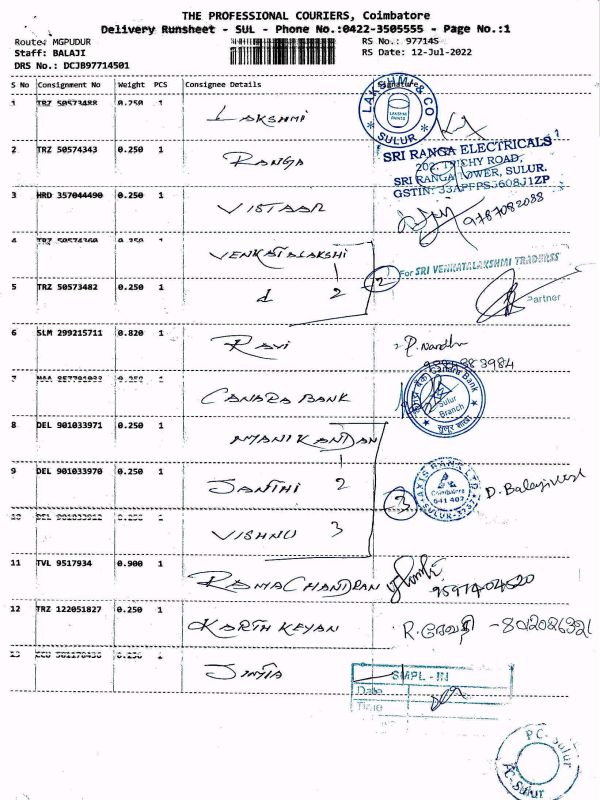 THE PROFESSIONAL COURIERS, Coimbatore
Delivery Runsheet - SUL - Phone No.:0422-3505555 - Page No.:1
Route: MGPUDUR RS No.: 977145
Staff: BALAJI RS Date: 12-Jul-2022
DRS No.: DCJB97714501
S No Consignment No Weight PCS Consignee Details Signature
1 TRZ 50573488 0.250 1 LAKSHMI
LAKSHMI & CO
LAKSHMI PAINTS
SULUR
2 TRZ 50574343 0.250 1 RANGA
SRI RANGA ELECTRICALS
202, TRICHY ROAD,
SRI RANGA TOWER, SULUR.
GSTIN: 33APFPS3608J1ZP
3 HRD 357044490 0.250 1 VISTAAR
9787082088
4 TRZ 50574360 0.250 1 VENKATALAKSHMI
1
For SRI VENKATALAKSHMI TRADERSS
5 TRZ 50573482 0.250 1 2
2
Partner
6 SLM 299215711 0.820 1 RAVI
P. Nandh
7 1 CANARA BANK
Canara Bank
Sulur
Branch
सुलूर शाखा
8 DEL 901033971 0.250 1 MANIKANDAN
1
9 DEL 901033970 0.250 1 JANTHI 2
3
AXIS BANK LTD
Coimbatore
641 402
SULUR
10 DEL 0.250 1 VISHNU 3
11 TVL 9517934 0.900 1 RAMACHANDRAN
12 TRZ 122051827 0.250 1 KARTHKEYAN
R.
13 0.250 1
SMPL - IN
Date
Time
PC-Sulur